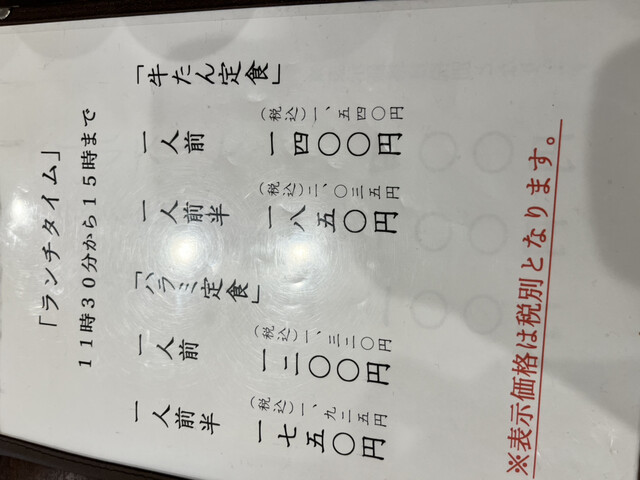 「ランチタイム」
11時30分から15時まで
「牛たん定食」
一人前
(税込)一、五四〇円
一四〇〇円
一人前半
(税込)二、〇三五円
一八五〇円
「ハラミ定食」
一人前
(税込)一、三二〇円
一二〇〇円
一人前半
(税込)一、九二五円
一七五〇円
※表示価格は税別となります。